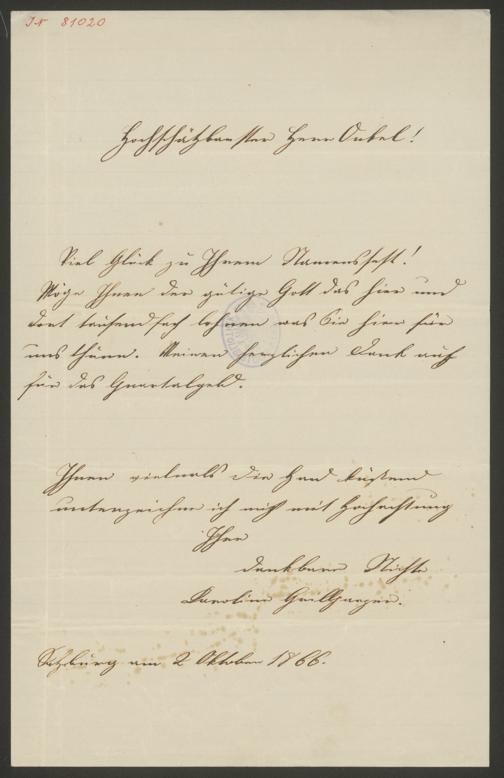 IN 81020
Hochschätzbarster Herr Onkel!
Viel Glück zu Ihrem Namensfest!
Möge Ihnen der gütige Gott das hier und
dort tausendfach lohnen was Sie hier für
uns thuen. Meinen herzlichen Dank auch
für das Quartalgeld.
Ihnen vielmals die Hand küßend
unterzeichne ich mich mit Hochachtung
Ihre
dankbare Nichte
Caroline Grillparzer.
Salzburg am 2 Oktober 1866.